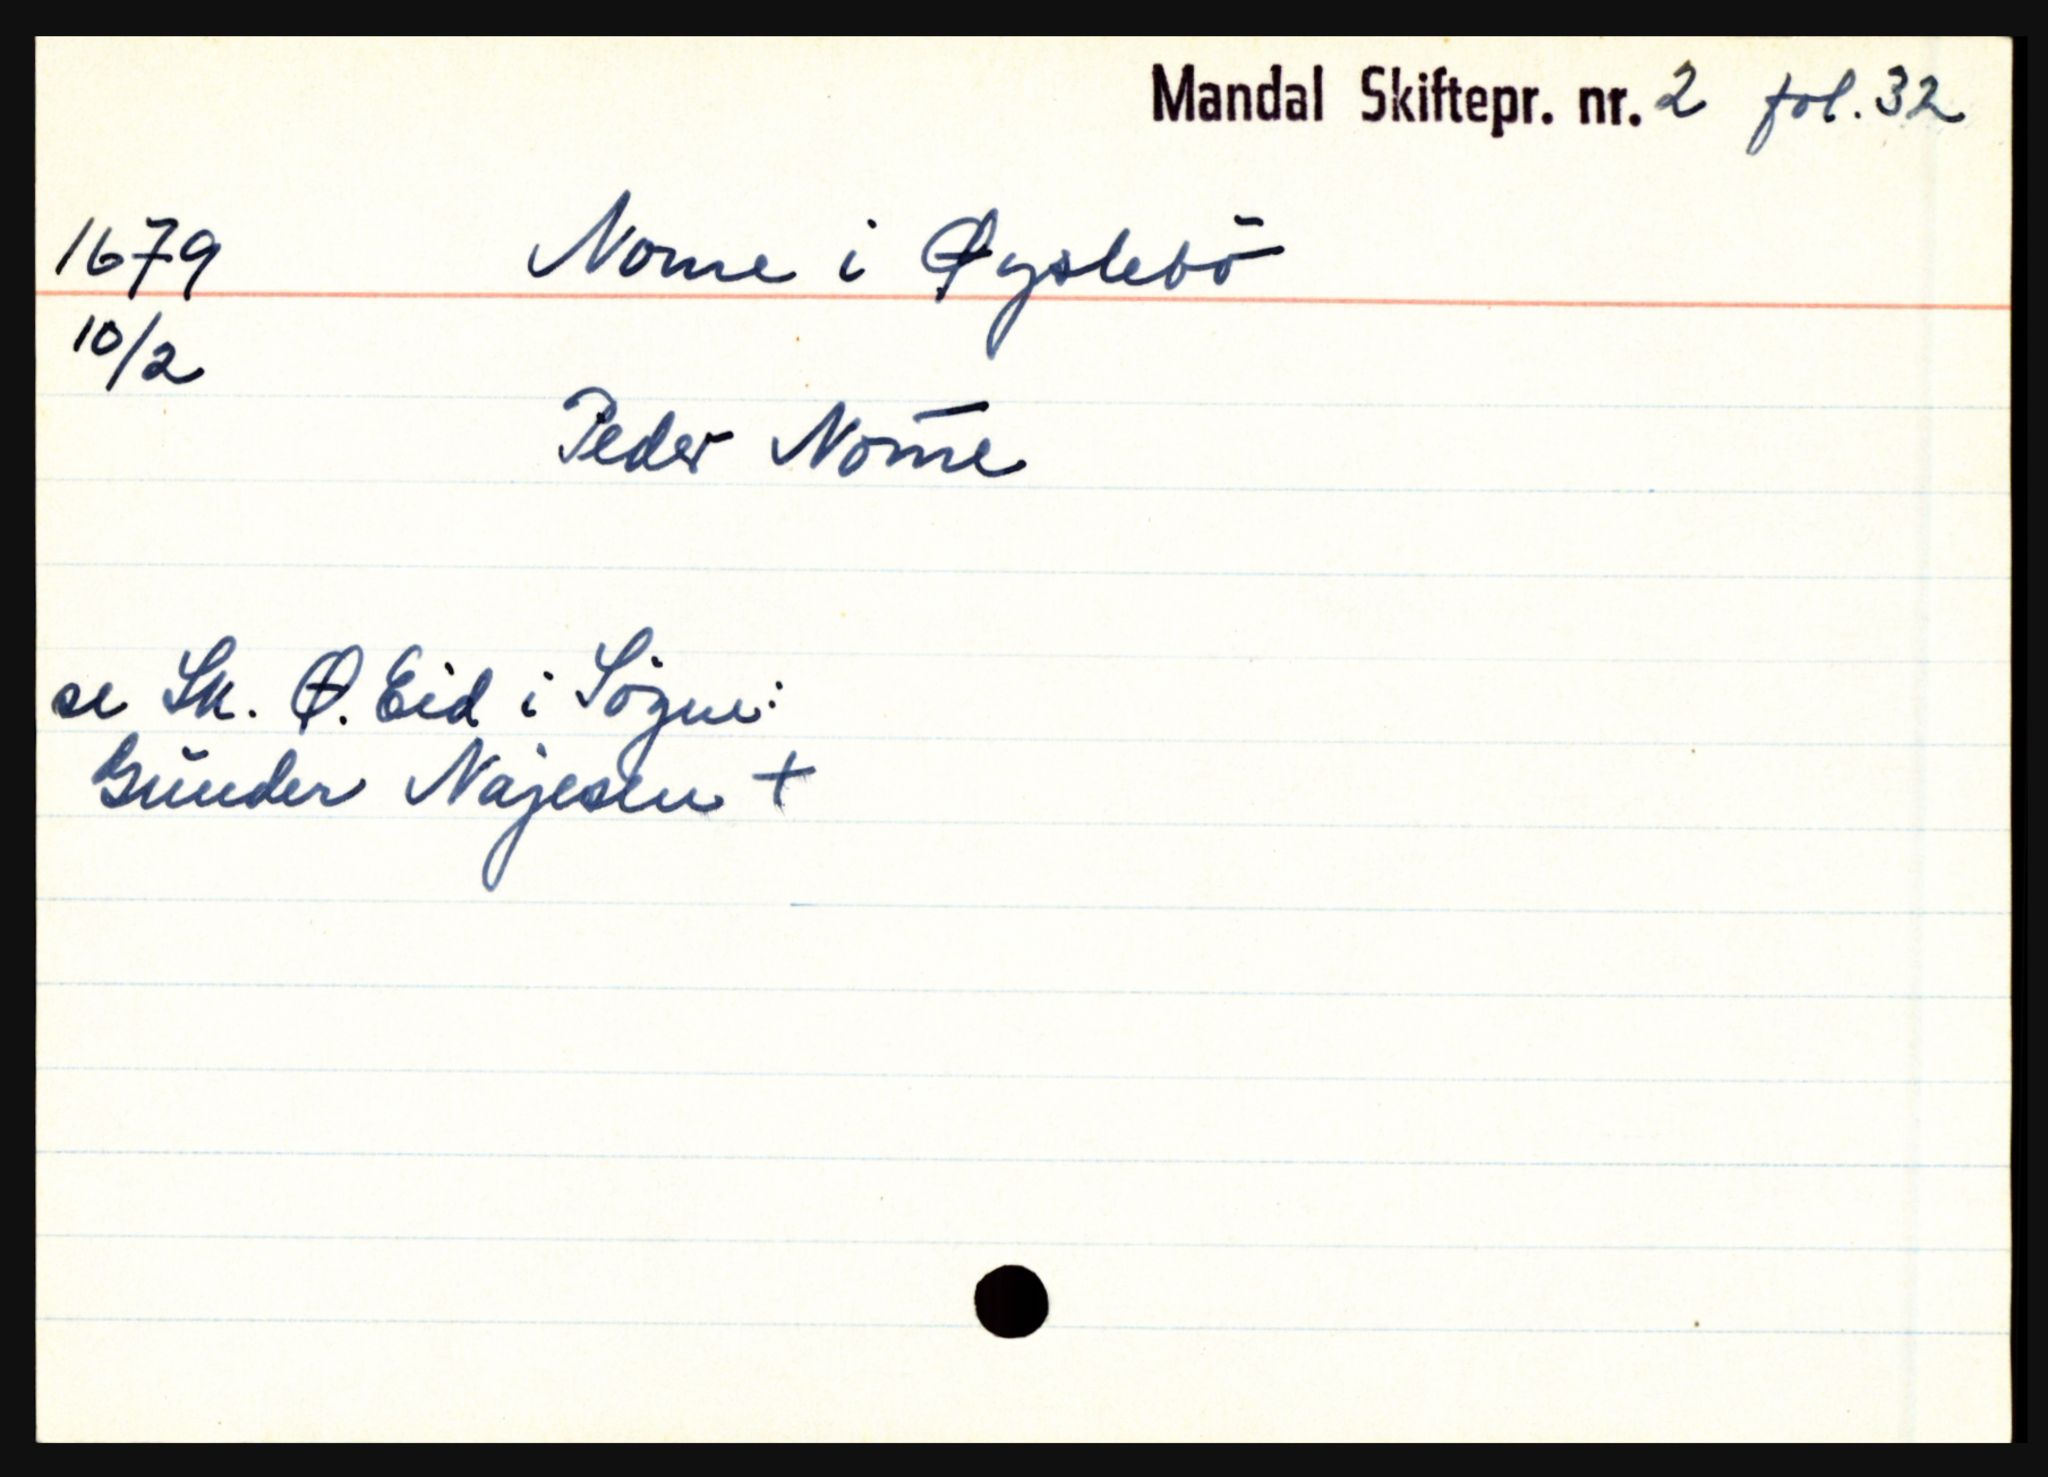 Mandal Skiftepr. nr. 2 fol. 32
1679 Nome i Øyslebö
10/2
Peder Nome
se Sk. Ø. Eid i Sögne:
Gunder Najesen +